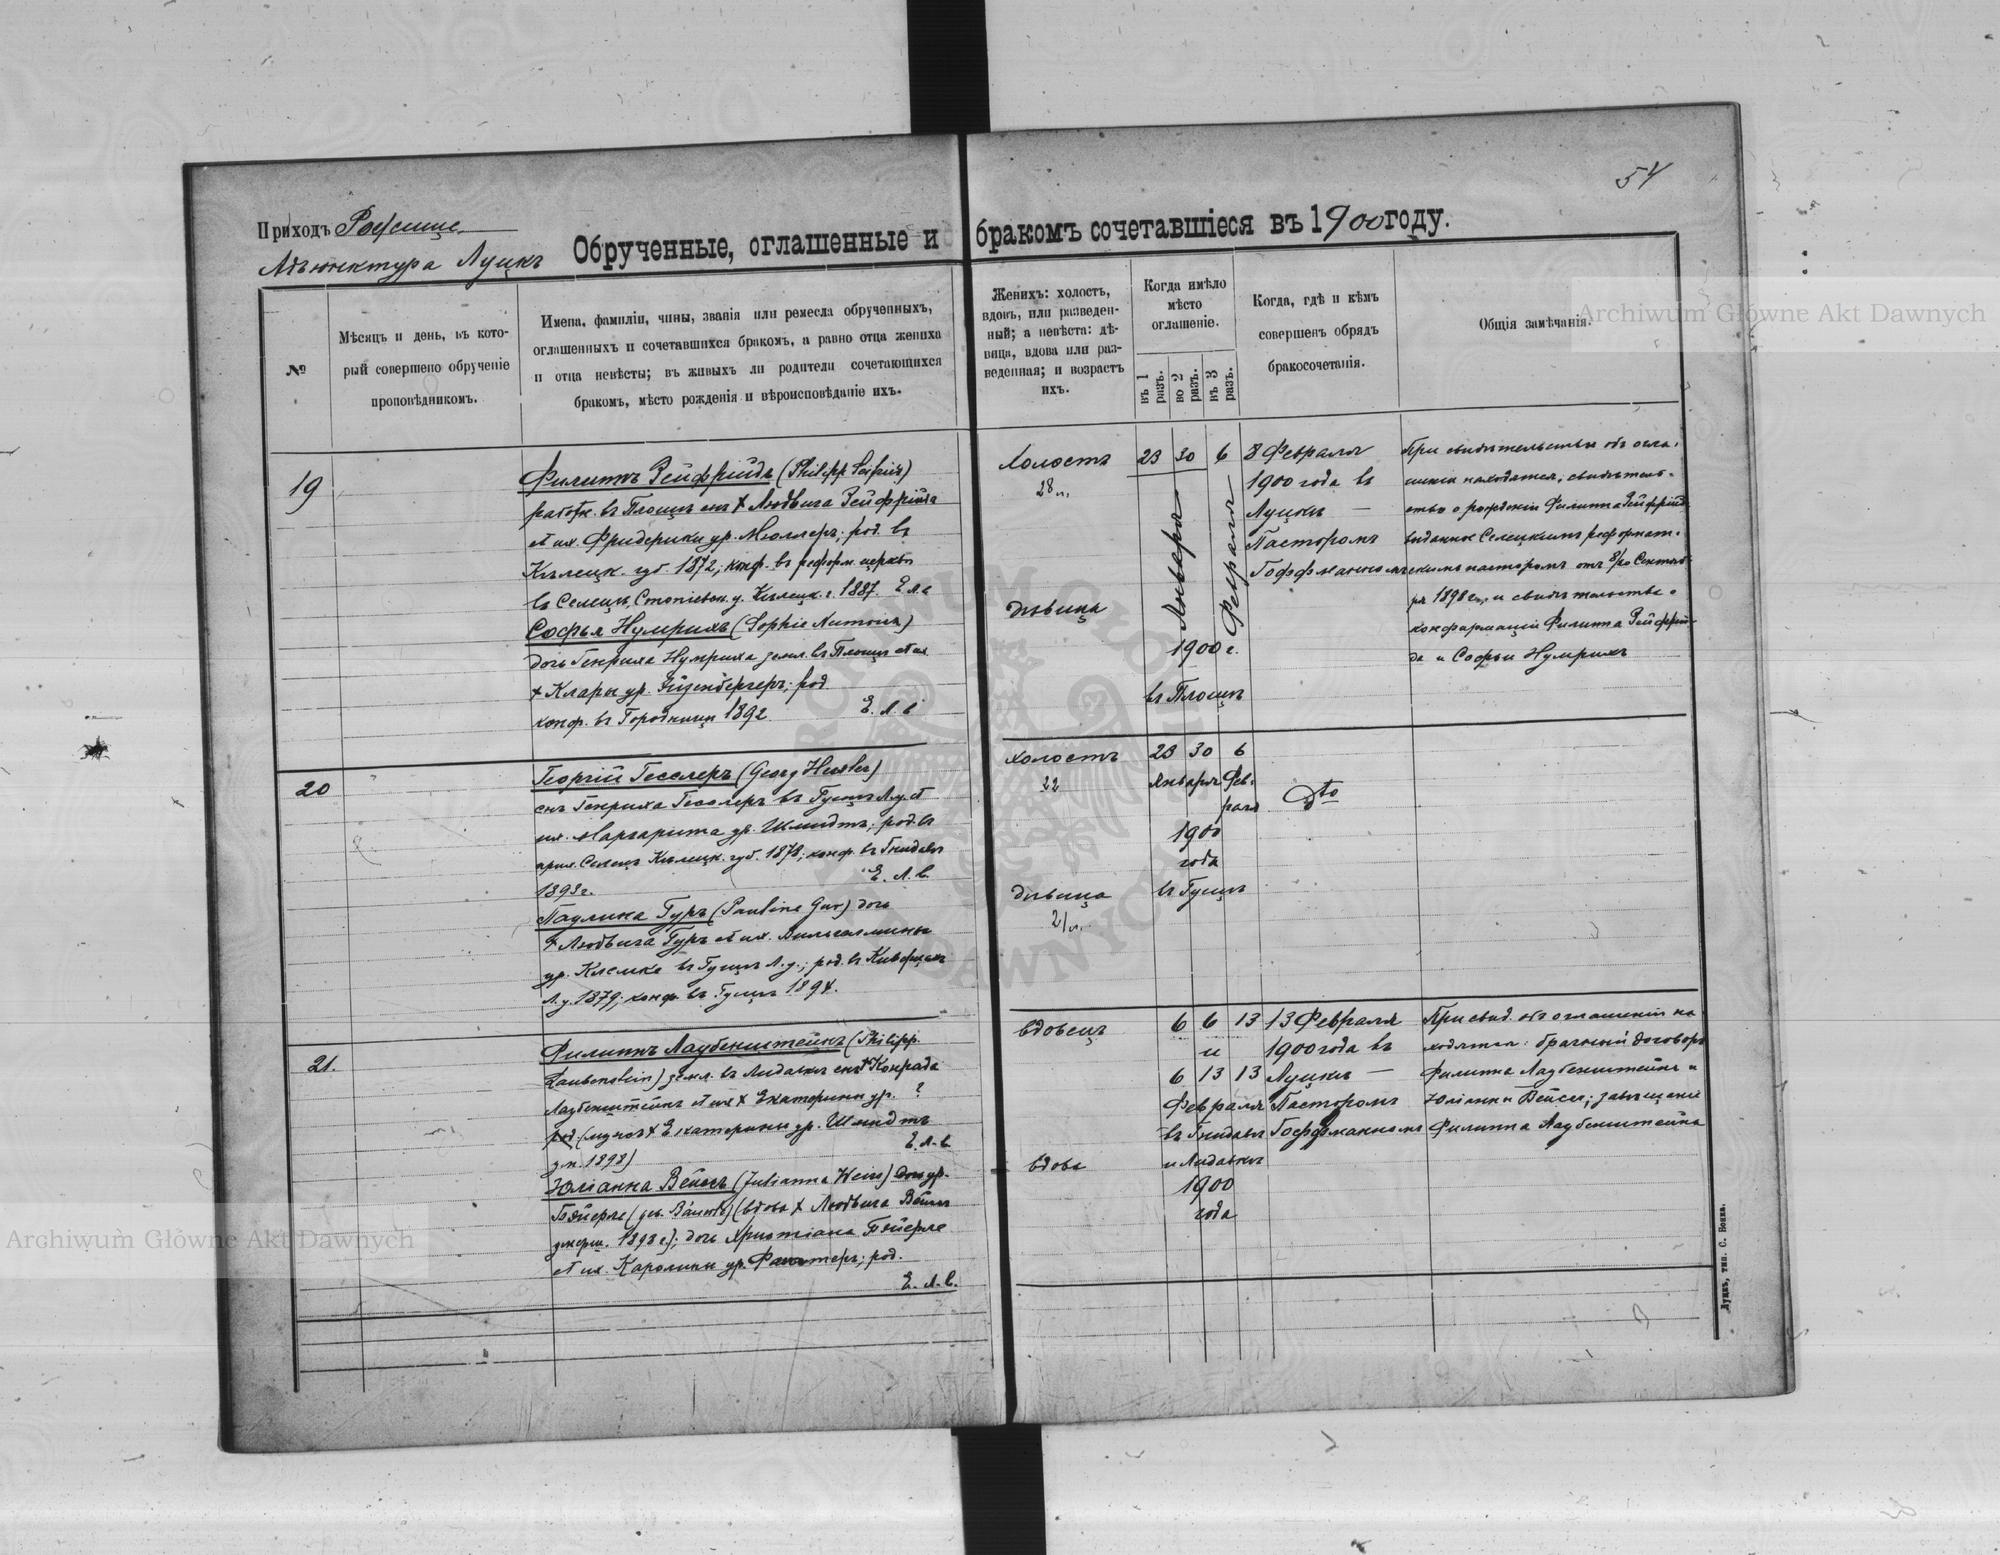 54
Приходъ Рожище.
Адъюнктура Луцкъ
Обрученные, оглашенные и бракомъ сочетавшіеся въ 1900 году.
№
Мѣсяцъ и день, въ кото-
рый совершено обрученіе
проповѣдникомъ.
Имена, фамиліи, чины, званія или ремесла обрученныхъ,
оглашенныхъ и сочетавшихся бракомъ, а равно отца жениха
и отца невѣсты; въ живыхъ ли родители сочетающихся
бракомъ, мѣсто рожденія и вѣроисповѣданіе ихъ.
Женихъ: холостъ,
вдовъ, или разведен-
ный; а невѣста: дѣ-
вица, вдова или раз-
веденная; и возрастъ
ихъ.
Когда имѣло
мѣсто
оглашеніе.
въ 1 разъ.
во 2 разъ.
въ 3 разъ.
Когда, гдѣ и кѣмъ
совершенъ обрядъ
бракосочетанія.
Общія замѣчанія.
Archiwum Główne Akt Dawnych
19
Филиппъ Зейфридъ (Philipp Seifried)
работн. въ Площѣ сынъ † Людвига Зейфрида
и его ж. Фридерики ур. Мюллеръ; род. въ
Кѣлецк. губ. 1872; конф. въ реформ. церкви
въ Селецѣ, Стопницк. у. Кѣлецк. г. 1887. Е. л. в.
Софья Нумрихъ (Sophie Numrich)
дочь Генриха Нумриха земл. въ Площѣ и его ж.
† Клары ур.; род.
конф. въ Городницѣ 1892. Е. л. в.
Холостъ
28 л.
дѣвица
23 30 6
Января
Февраля
1900 г.
въ Площѣ
8 Февраля
1900 года въ
Луцкѣ —
Пасторомъ
Гоффманномъ
При свидѣтельствѣ объ огла-
шеніи находятся: свидѣтель-
ство о рожденіи Филиппа Зейфрид
выданное Селецкимъ реформат-
скимъ пасторомъ отъ 8/20 Сентяб-
ря 1898 г., и свидѣтельство о
конфирмаціи Филиппа Зейфри-
да и Софьи Нумрихъ
20
Георгій Гесслеръ (Georg Hessler)
сынъ Генриха Гесслеръ въ Гущѣ Л. у. и его
ж. Маргарита ур. Шмидтъ; род. въ
прих. Селецъ Кѣлецк. губ. 1878; конф. въ Гнидавѣ
1893 г. Е. л. в.
Паулина Гуръ (Pauline Gur) дочь
† Людвига Гуръ и его ж. Вильгелмины
ур. Клемке въ Гущѣ Л. у.; род. въ Киверцахъ
Л. у. 1879; конф. въ Гущѣ 1894.
холостъ
22
дѣвица
21 л.
23 30 6
Января Фев-
раля
1900
года
въ Гущѣ
Dto
21.
Филиппъ Лаубенштейнъ (Philipp
Laubenstein) земл. въ Лидавкѣ сынъ † Конрада
Лаубенштейнъ и его ж. † Екатерины ур. ?
род. (мужъ † Екатерины ур. Шмидтъ
ум. 1898) Е. л. в.
Юліанна Вейсъ (Julianna Weiss) ур.
Бейерле (вдова † Людвига Вейсъ
умерш. 1898 г.); дочь Христіана Бейерле
и его ж. Каролины ур.; род.
Е. л. в.
вдовецъ
вдова
6 6 13
и
6 13 13
Февраля
въ Гнидавѣ
и Лидавкѣ
1900
года
13 Февраля
1900 года въ
Луцкѣ —
Пасторомъ
Гоффманномъ
При свид. объ оглашеніи на-
ходятся: брачный договоръ
Филиппа Лаубенштейнъ и
Юліанны Вейсъ; завѣщаніе
Филиппа Лаубенштейна
Луцкъ, тип. С. Бонка.
Archiwum Główne Akt Dawnych
ARCHIWUM GŁÓWNE AKT DAWNYCH